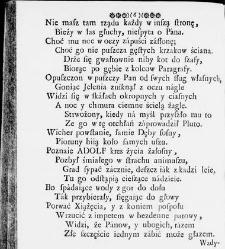 (6)
Nie masz tam rządu każdy w inszą stronę,
Bieży w las głuchy, niespyta o Pana.
Choć mu noc w oczy zapuści zasłonę;
Choć go nie puszcza gęstych krzakow ściana.
Drże się gwałtownie niby kot do szasy,
Biorąc po gębie z kolcow Paragrafy.
Opuszczon w puszczy Pan od swych sług własnych,
Goniąc Jelenia zniknął z oczu nagle
Widzi się w skałach okropnych y ciasnych
A noc y chmura ciemne ścielą żagle.
Strwożony, kiedy na myśl przyszło mu to
Ze go w tę otchłań zaprowadził Pluto.
Wicher powstanie, łamie Dęby sosny,
Pioruny biją koło samych uszu.
Poznaie ADOLF kres życia żałosny,
Pozbył śmiałego w strachu animuszu,
Grad sypać zacznie, deszcz iak z kadzi leie,
Tu go odstąpią cieszące nadzieie.
Bo spadaiące wody z gor do dołu
Tak przybierały, sięgaiąc do głowy
Porwać Xiążęcia, y z koniem pospołu
Wrzucić z impetem w bezdenne parowy,
Widzi, że Panow, y ubogich, razem
Złe szczęście iednym zabić może głazem.
Wady-